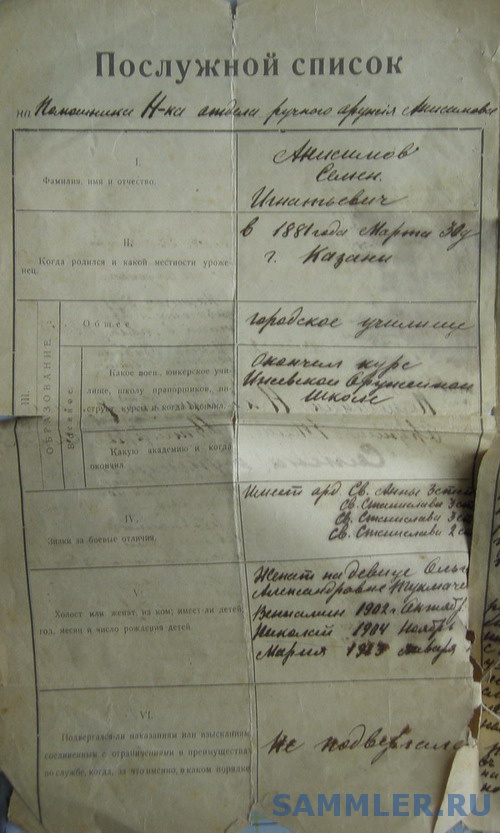 Послужной список
на Помошника Н-ка отдела ручного оружия Анисимова
I.
Фамилия, имя и отчество.
Анисимов
Семен
Игнатьевич
II.
Когда родился и какой местности уроже-
нец.
в 1881 года Марта 30 д
г. Казани
III.
ОБРАЗОВАНИЕ:
Общее
городское училище
Военное
Какое воен. юнкерское учи-
лище, школу прапорщиков, ин-
структ. курсы и когда окончил.
Окончил курс
Ижевской Оружейной
Школе
Какую академию и когда
окончил.
IV.
Знаки за боевые отличия.
Имеет орд Св. Анны 3 степ
Св. Станислава 3 ст
Св. Станислава 3 ст
Св. Станислава 2 с
V.
Холост или женат, на ком; имеет-ли детей,
год, месяц и число рождения детей.
Женат на девице Ольг
Александровне
Вениамин 1902 г. Октябр
Николай 1904 Ноябрь
Мария 1913 января
VI.
Подвергался-ли наказаниям или взысканиям,
соединенным с ограничениями в преимуществах
по службе, когда, за что именно, в каком порядке
Не подвергался
SAMMLER.RU